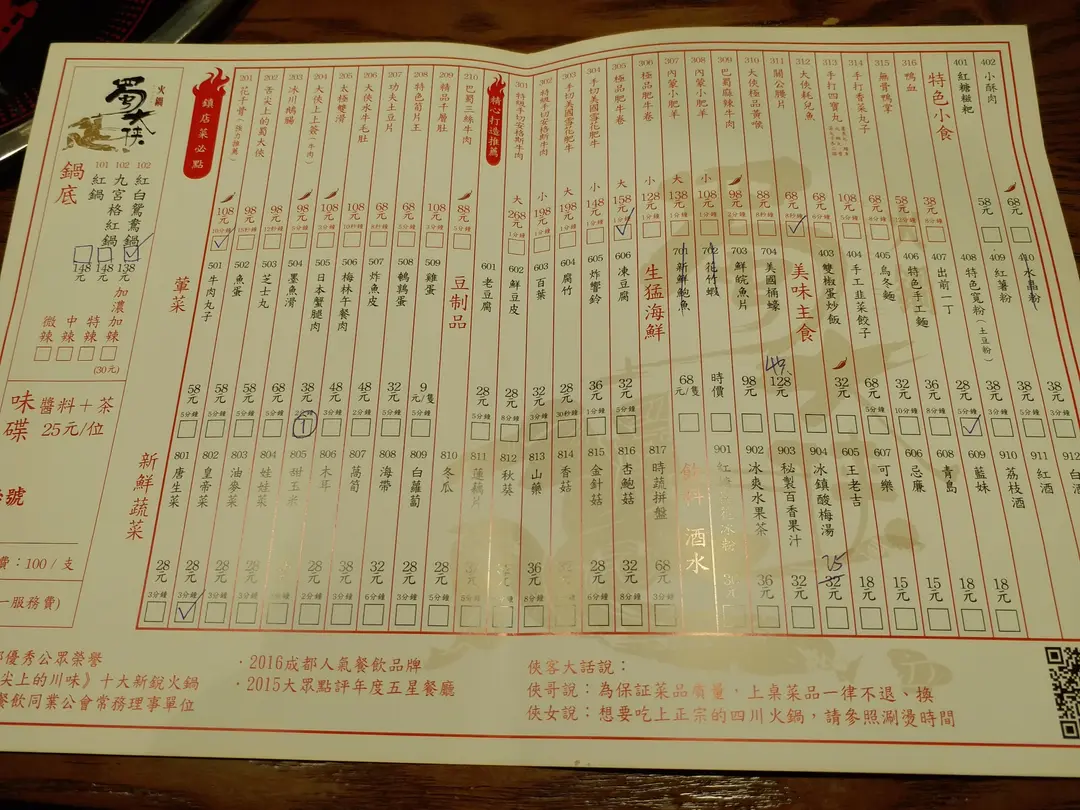 蜀大俠
火鍋
鍋底
101 紅鍋 148元
102 九宮格紅鍋 148元
102 紅白鴛鴦鍋 138元
加濃加辣
微辣
中辣
特辣
加辣
(30元)
味碟
醬料＋茶
25元/位
號
費：100 / 支
一服務費)
鎮店菜必點
201 花千骨（強力推薦） 108元 10分鐘
202 舌尖上的蜀大俠 98元 15秒鐘
203 冰川鵝腸 98元 12秒鐘
204 大俠上上簽（牛肉） 98元 3分鐘
205 太極雙滑 108元
206 大俠水牛毛肚 108元
207 功夫土豆片 68元
208 特色筍片王 68元 5分鐘
209 精品千層肚 108元 2分鐘
210 巴蜀三絲牛肉 88元 5分鐘
精心打造推薦
301 特級手切安格斯牛肉 大 268元 1分鐘
302 特級手切安格斯牛肉 小 198元 1分鐘
303 手切美國雪花肥牛 大 198元 1分鐘
304 手切美國雪花肥牛 小 148元 1分鐘
305 極品肥牛卷 大 158元 1分鐘
306 極品肥牛卷 小 128元 1分鐘
307 內蒙小肥羊 大 138元 1分鐘
308 內蒙小肥羊 小 108元 1分鐘
309 巴蜀麻辣牛肉 98元 2分鐘
310 大俠極品黃喉 88元
311 關公腰片 68元 8秒鐘
312 大俠耗兒魚 68元
313 手打四寶丸 108元
314 手打香菜丸子 68元
315 無骨鴨掌 58元
316 鴨血 38元
特色小食
401 紅糖糍粑 58元
402 小酥肉 68元
葷菜
501 牛肉丸子 58元 5分鐘
502 魚蛋 58元 5分鐘
503 芝士丸 58元 5分鐘
504 墨魚滑 68元
505 日本蟹腿肉 38元 2分鐘 1
506 梅林午餐肉 48元 3分鐘
507 炸魚皮 48元
508 鵪鶉蛋 32元 5分鐘
509 雞蛋 9元/隻 5分鐘
豆制品
601 老豆腐 28元 5分鐘
602 鮮豆皮 28元 8分鐘
603 百葉 32元 3分鐘
604 腐竹 28元 30秒鐘
605 炸響鈴 36元
606 凍豆腐 32元 5分鐘
生猛海鮮
701 新鮮鮑魚 68元/隻
702 花竹蝦 時價
703 鮮皖魚片 98元
704 美國桶蠔 128元
美味主食
403 雙椒蛋炒飯 32元
404 手工韭菜餃子 68元
405 烏冬麵 32元
406 特色手工麵 36元
407 出前一丁 28元
408 特色寬粉（土豆粉） 38元
409 紅薯粉 38元
水晶粉 38元 3分鐘
新鮮蔬菜
801 唐生菜 28元 3分鐘
802 皇帝菜 28元 3分鐘
803 油麥菜 28元
804 娃娃菜 28元
805 甜玉米 28元
806 木耳 38元
807 萵筍 32元
808 海帶 28元
809 白蘿蔔 28元
810 冬瓜
811 蓮藕片
812 秋葵 36元
813 山藥
814 香菇 28元
815 金針菇 32元
816 杏鮑菇
817 時蔬拼盤 68元
飲料 酒水
901
902 冰爽水果茶 36元
903 秘製百香果汁 32元
904 冰鎮酸梅湯 32元 25
605 王老吉 18元
607 可樂 15元
606 忌廉 15元
608 青島 18元
609 藍妹 18元
910 荔枝酒
911 紅酒
912
都優秀公眾榮譽
尖上的川味》十大新銳火鍋
餐飲同業公會常務理事單位
·2016成都人氣餐飲品牌
·2015大眾點評年度五星餐廳
俠客大話說：
俠哥說：為保証菜品質量，上桌菜品一律不退、換
俠女說：想要吃上正宗的四川火鍋，請參照涮燙時間